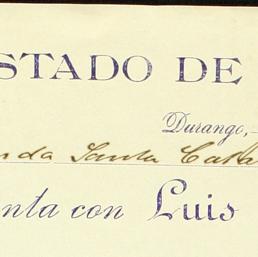 STADO DE
Durango,
nda Santa Cata
nta con Luis